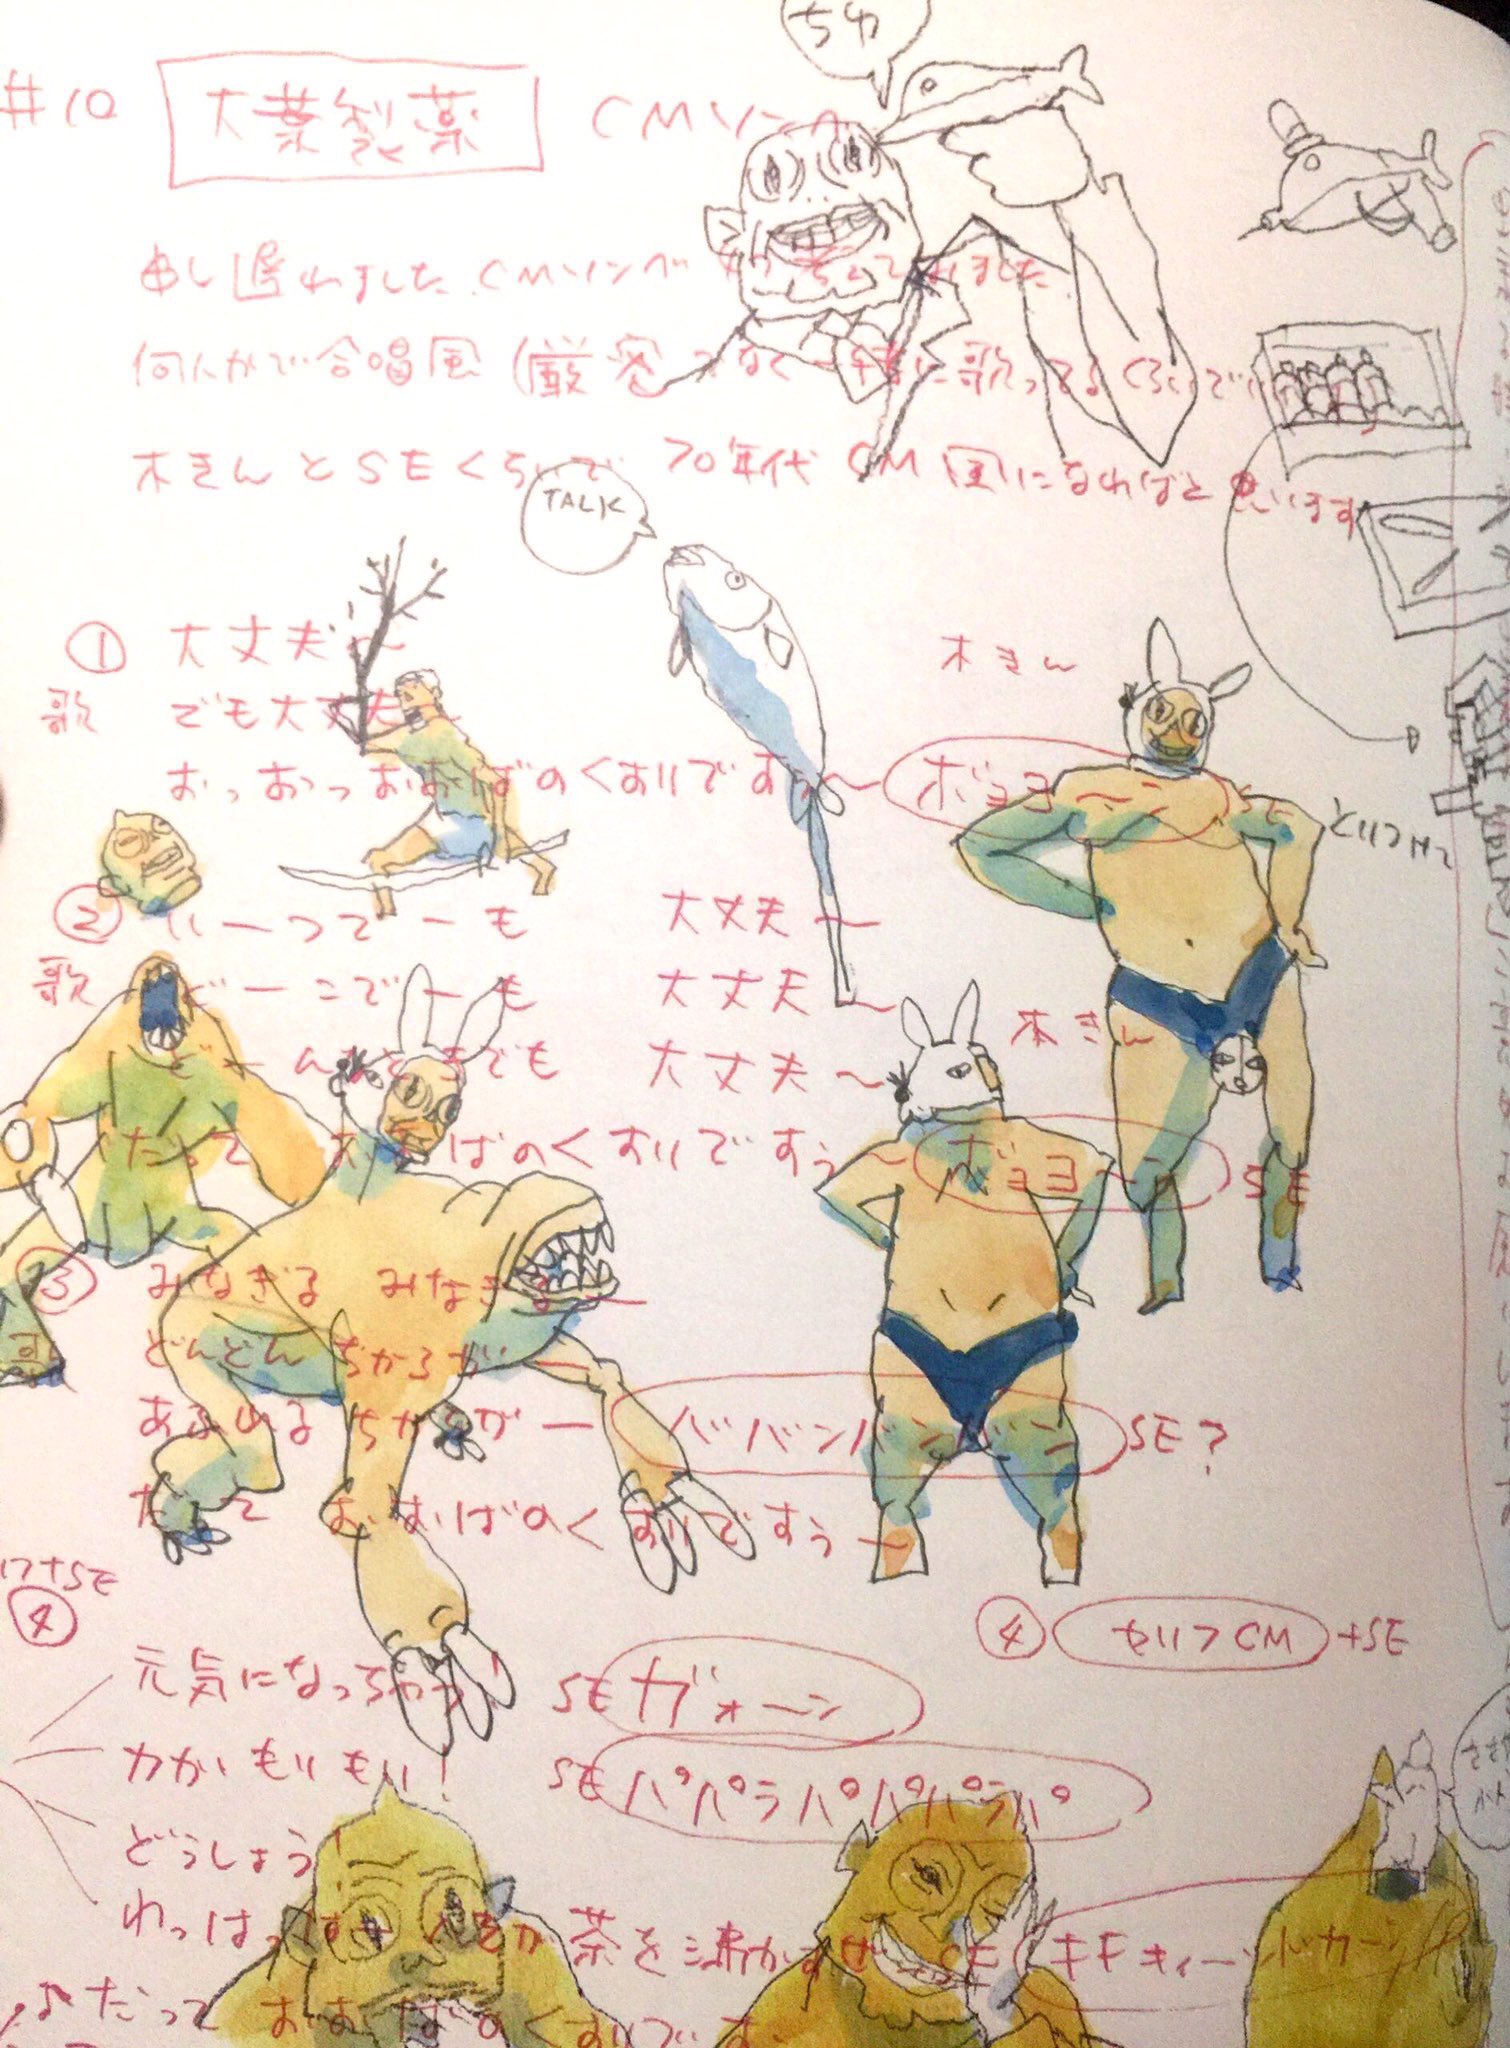 ちゅ
#10 大葉製薬 CMソング
申し遅れました CMソング
何人かで合唱風 (厳密でなく 一緒に歌ってるくらいで
木きんとSEくらいで 70年代CM風になればと思います
TALK
① 大丈夫〜
木きん
歌 でも大丈夫〜
おっおっおおばのくすりですぅ〜 ボヨヨーン SE
② いーつでーも 大丈夫〜
歌 どーこでーも 大丈夫〜
木きん
どーんなときでも 大丈夫〜
だって おおばのくすりですぅ〜 ボヨヨーン SE
③ みなぎる みなぎるー
歌 どんどん ちからがー
あふれる ちからがー ババンバンバン SE?
だって おおばのくすりですぅー
+SE
④
④ セリフCM +SE
元気になっちゃう! SE ガオーン
力がもりもり! SE パパラパパパラパ
どうしよう!
わっはっ 茶を沸かす SE
♪だって おおばのくすりです